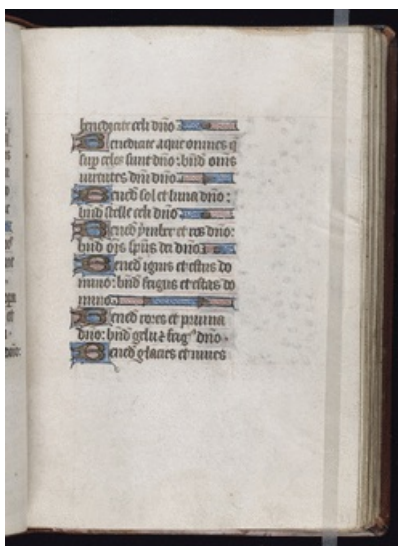 benedicite celi dño
Benedicite aque omnes q̄
sup celos sunt dño: bñd om̄s
uirtutes dñi dño
Bened sol et luna dño:
bñd stelle celi dño
Bened ymber et ros dño:
bñd om̄s sp̄us dei dño
Bened ignis et estus do
mino: bñd frigus et estas do
mino
Bened rores et pruina
dño: bñd gelu & frig dño
Bened glacies et niues